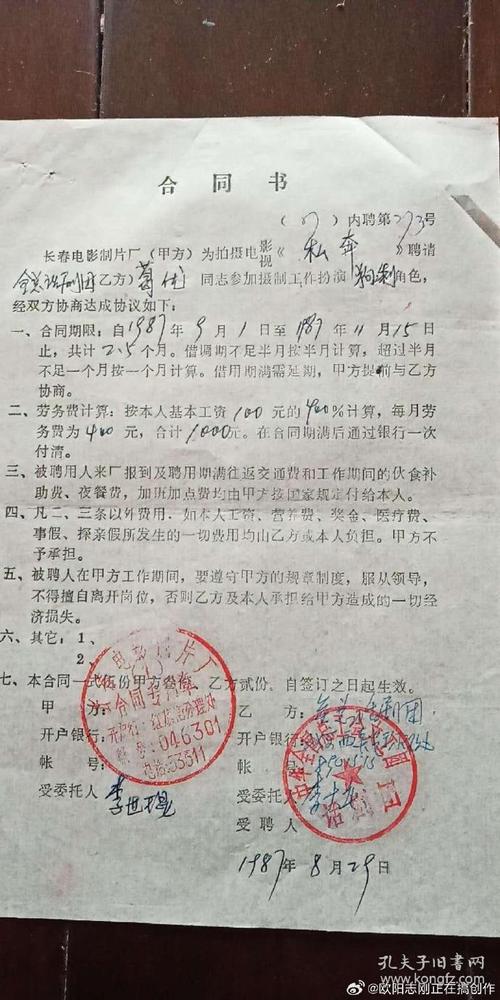 合同书
(87)内聘第273号
长春电影制片厂(甲方)为拍摄电影视《私奔》聘请
全总话剧团(乙方)葛优同志参加摄制工作扮演狗剩角色,
经双方协商达成协议如下:
一、合同期限:自1987年9月1日至1987年11月15日
止,共计2.5个月。借调期不足半月按半月计算,超过半月
不足一个月按一个月计算。借用期满需延期,甲方提前与乙方
协商。
二、劳务费计算:按本人基本工资100元的400%计算,每月劳
务费为400元,合计1000元。在合同期满后通过银行一次
付清。
三、被聘用人来厂报到及聘用期满往返交通费和工作期间的伙食补
助费、夜餐费,加班加点费均由甲方按国家规定付给本人。
四、凡二、三条以外费用.如本人工资、营养费、奖金、医疗费、
事假、探亲假所发生的一切费用均由乙方或本人负担。甲方不
予承担。
五、被聘人在甲方工作期间,要遵守甲方的规章制度,服从领导,
不得擅自离开岗位,否则乙方及本人承担给甲方造成的一切经
济损失。
六、其它:1、
2、
七、本合同一式伍份甲方叁份,乙方贰份,自签订之日起生效。
甲方: 乙方:全总话剧团
开户银行: 开户银行:
帐号: 帐号:
受委托人 李世琨 受委托人
受聘人
1987年8月29日
电影制片厂
合同专用章
046301
电话:53311
话剧团
孔夫子旧书网
@欧阳志刚正在搞创作